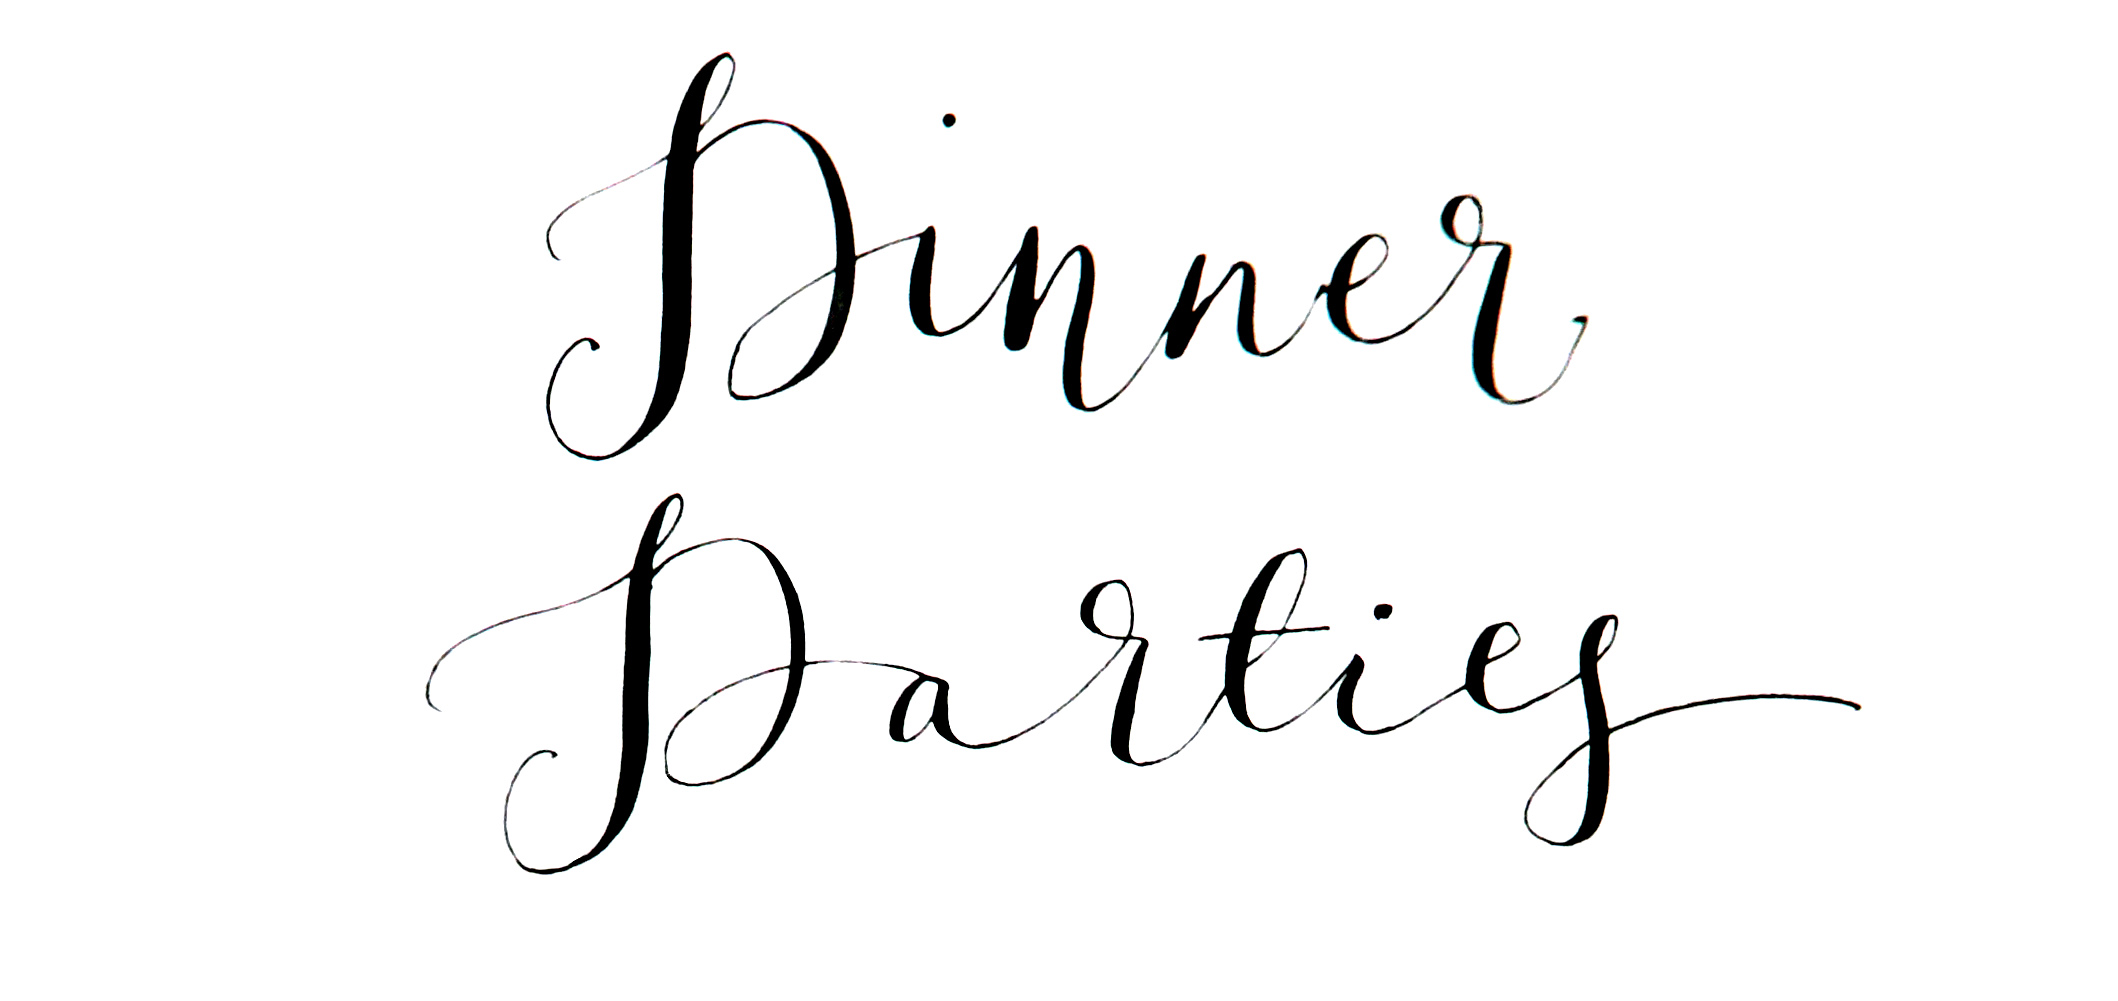 Dinner
Parties